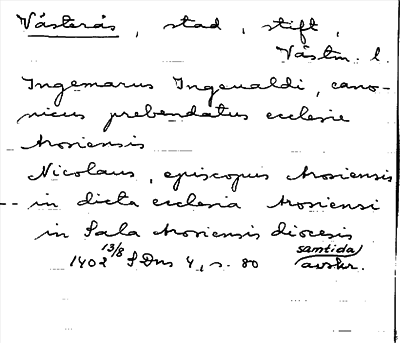 Västerås, stad, stift,
Västm. l.
Ingemarus Ingeualdi, cano-
nicus prebendatus ecclesie
Arosiensis
Nicolaus, episcopus Arosiensis
in dicta ecclesia Arosiensi
in Sala Arosiensis diocesis
1402 13/8 SDns 4, s. 80 samtida avskr.